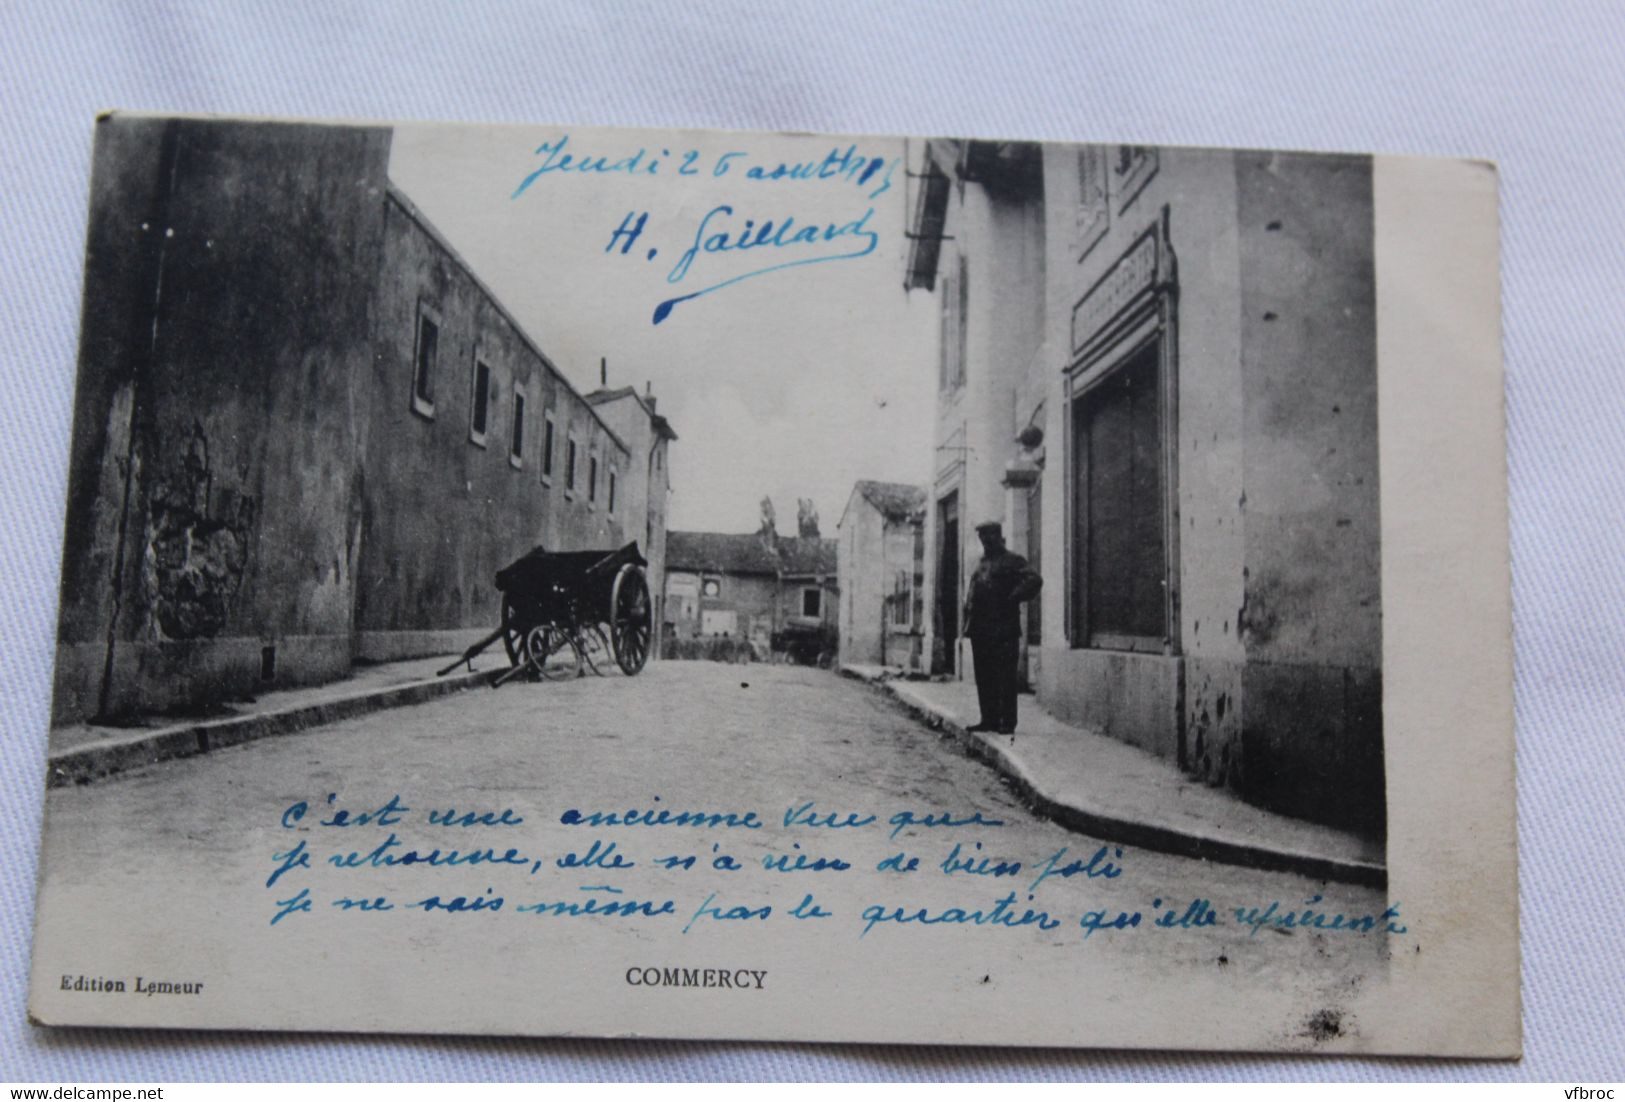 Jeudi 26 aout 1915
H. Gaillard
c'est une ancienne vue que
je retrouve, elle n'a rien de bien joli
je ne sais même pas le quartier qu'elle représente
COMMERCY
Edition Lemeur
www.delcampe.net
vfbroc